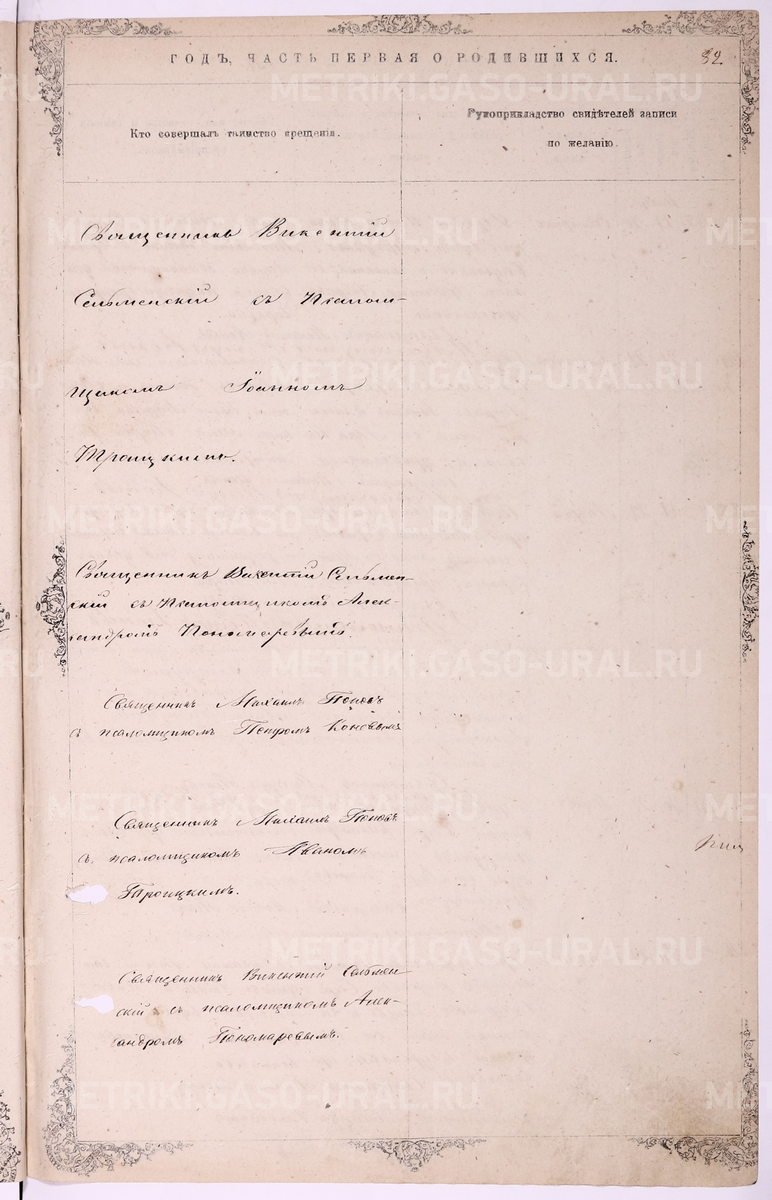 ГОДЪ, ЧАСТЬ ПЕРВАЯ О РОДИВШИХСЯ.
32.
Кто совершалъ таинство крещенія.
Рукоприкладство свидѣтелей записи
по желанію.
Священникъ Викентій
Сельменскій съ Псалом-
щикомъ Іоанномъ
Троицкимъ.
Священникъ Викентій Сельмен-
скій съ Псаломщикомъ Алек-
сандромъ Пономаревымъ.
Священникъ Михаилъ Поповъ
съ псаломщикомъ Петромъ Коновымъ
Священникъ Михаилъ Поповъ
съ псаломщикомъ Иваномъ
Троицкимъ.
Священникъ Викентій Сельмен-
скій съ псаломщикомъ Алек-
сандромъ Пономаревымъ.
METRIKI.GASO-URAL.RU